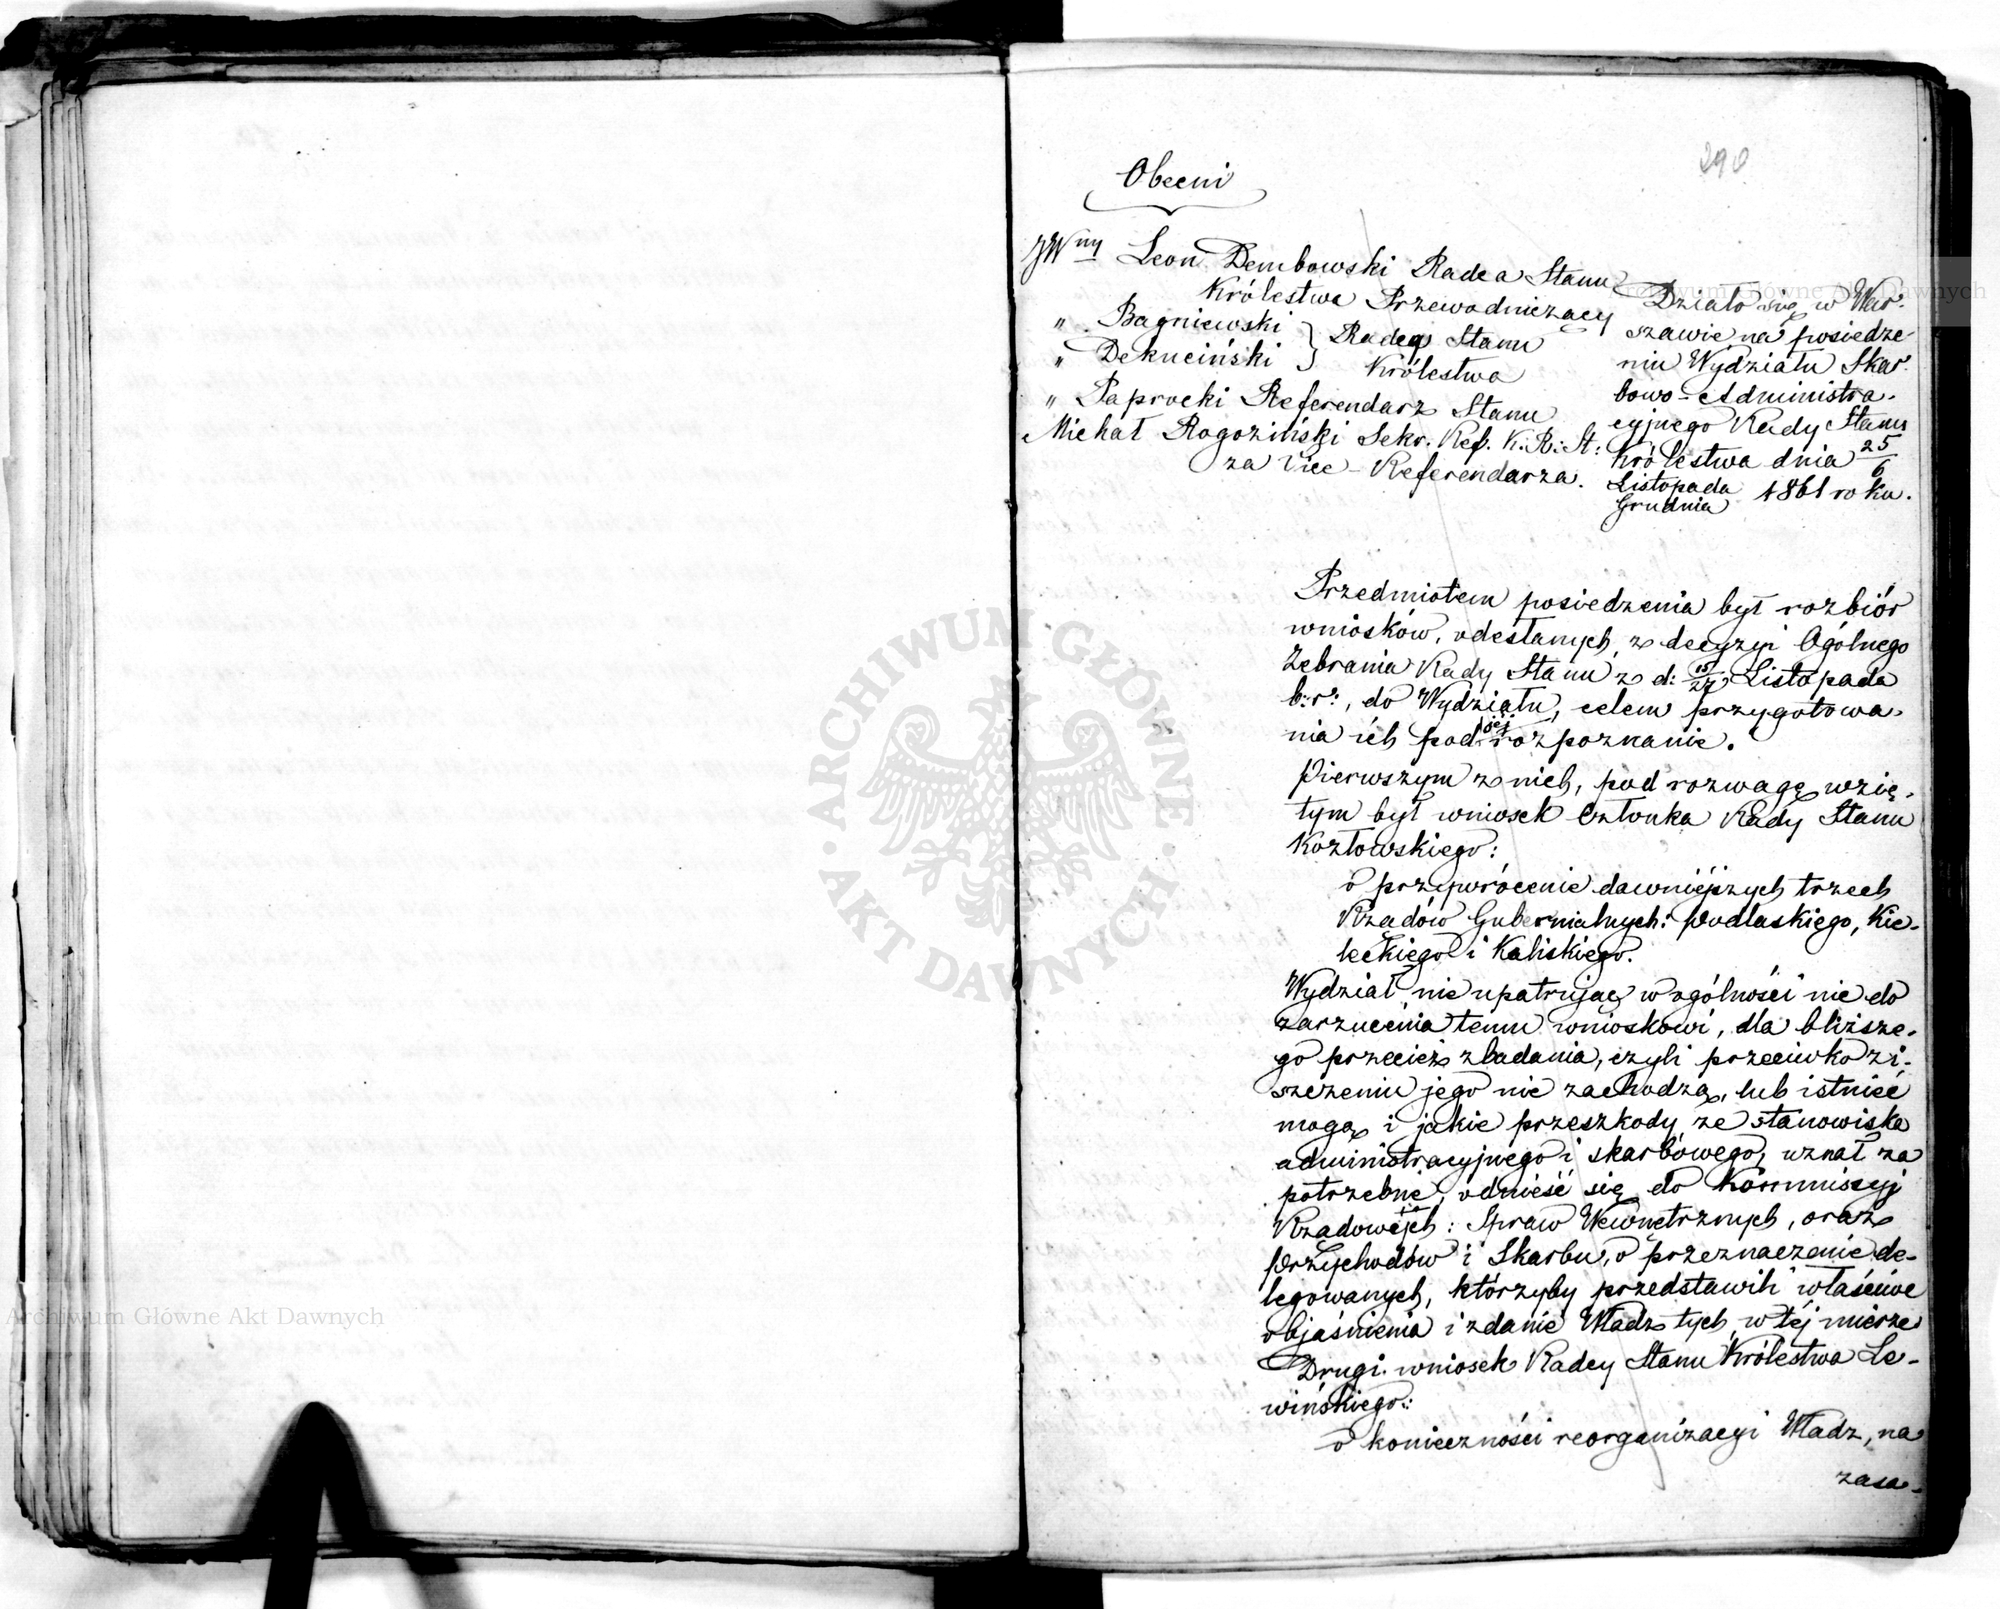 290
Obecni
JWny Leon Dembowski Radca Stanu
Królestwa Przewodniczący
" Bagniewski } Radcy Stanu
" Dekuciński } Królestwa
" Paprocki Referendarz Stanu
Michał Rogoziński Sekr. Ref. K. R. St:
za Vice-Referendarza.
Działo się w War-
szawie na posiedze-
niu Wydziału Skar-
bowo-Administra-
cyjnego Rady Stanu
Królestwa dnia 25/6
Listopada/Grudnia 1861 roku.
Przedmiotem posiedzenia był rozbiór
wniosków, odesłanych z decyzyi Ogólnego
Zebrania Rady Stanu z d: 15/27 Listopada
b: r:, do Wydziału, celem przygotowa-
nia ich pod jej rozpoznanie.
Pierwszym z nich, pod rozwagę wzię-
tym był wniosek Członka Rady Stanu
Kozłowskiego:
o przywrócenie dawniejszych trzech
Rządów Gubernialnych: Podlaskiego, Kie-
leckiego i Kaliskiego.
Wydział nie upatrując w ogólności nic do
zarzucenia temu wnioskowi, dla bliższe-
go przecież zbadania, czyli przeciwko zi-
szczeniu jego nie zachodzą, lub istnieć
mogą i jakie przeszkody ze stanowiska
administracyjnego i skarbowego, uznał za
potrzebne, odnieść się do Kommissyj
Rządowych: Spraw Wewnętrznych, oraz
Przychodów i Skarbu, o przeznaczenie de-
legowanych, którzyby przedstawili właściwe
objaśnienia i zdanie Władz tych w tej mierze
Drugi wniosek Radcy Stanu Królestwa Le-
wińskiego:
o konieczności reorganizacyi Władz, na
zasa-
Archiwum Główne Akt Dawnych
Archiwum Główne Akt Dawnych
ARCHIWUM GŁÓWNE · AKT DAWNYCH ·